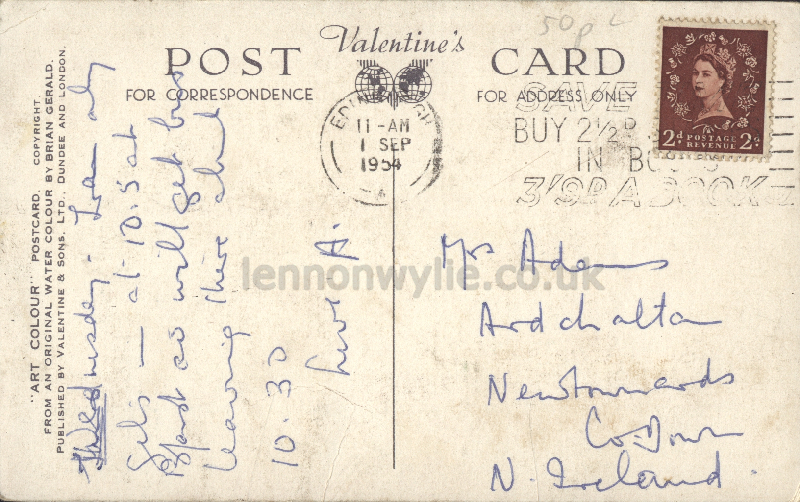 50p
Valentine's
POST CARD
FOR CORRESPONDENCE
FOR ADDRESS ONLY
EDINBURGH
11-AM
1 SEP
1954
SAVE
BUY 2½D
IN BOOKS
3/9D A BOOK
2D POSTAGE 2D
REVENUE
"ART COLOUR" POSTCARD. COPYRIGHT.
FROM AN ORIGINAL WATER COLOUR BY BRIAN GERALD.
PUBLISHED BY VALENTINE & SONS, LTD., DUNDEE AND LONDON.
Wednesday-
at 10.5 at
so will get bus
leaving there about
10.30
Love A.
Mrs Adams
Ardchattan
Newtownards
Co. Down
N. Ireland.
lennonwylie.co.uk